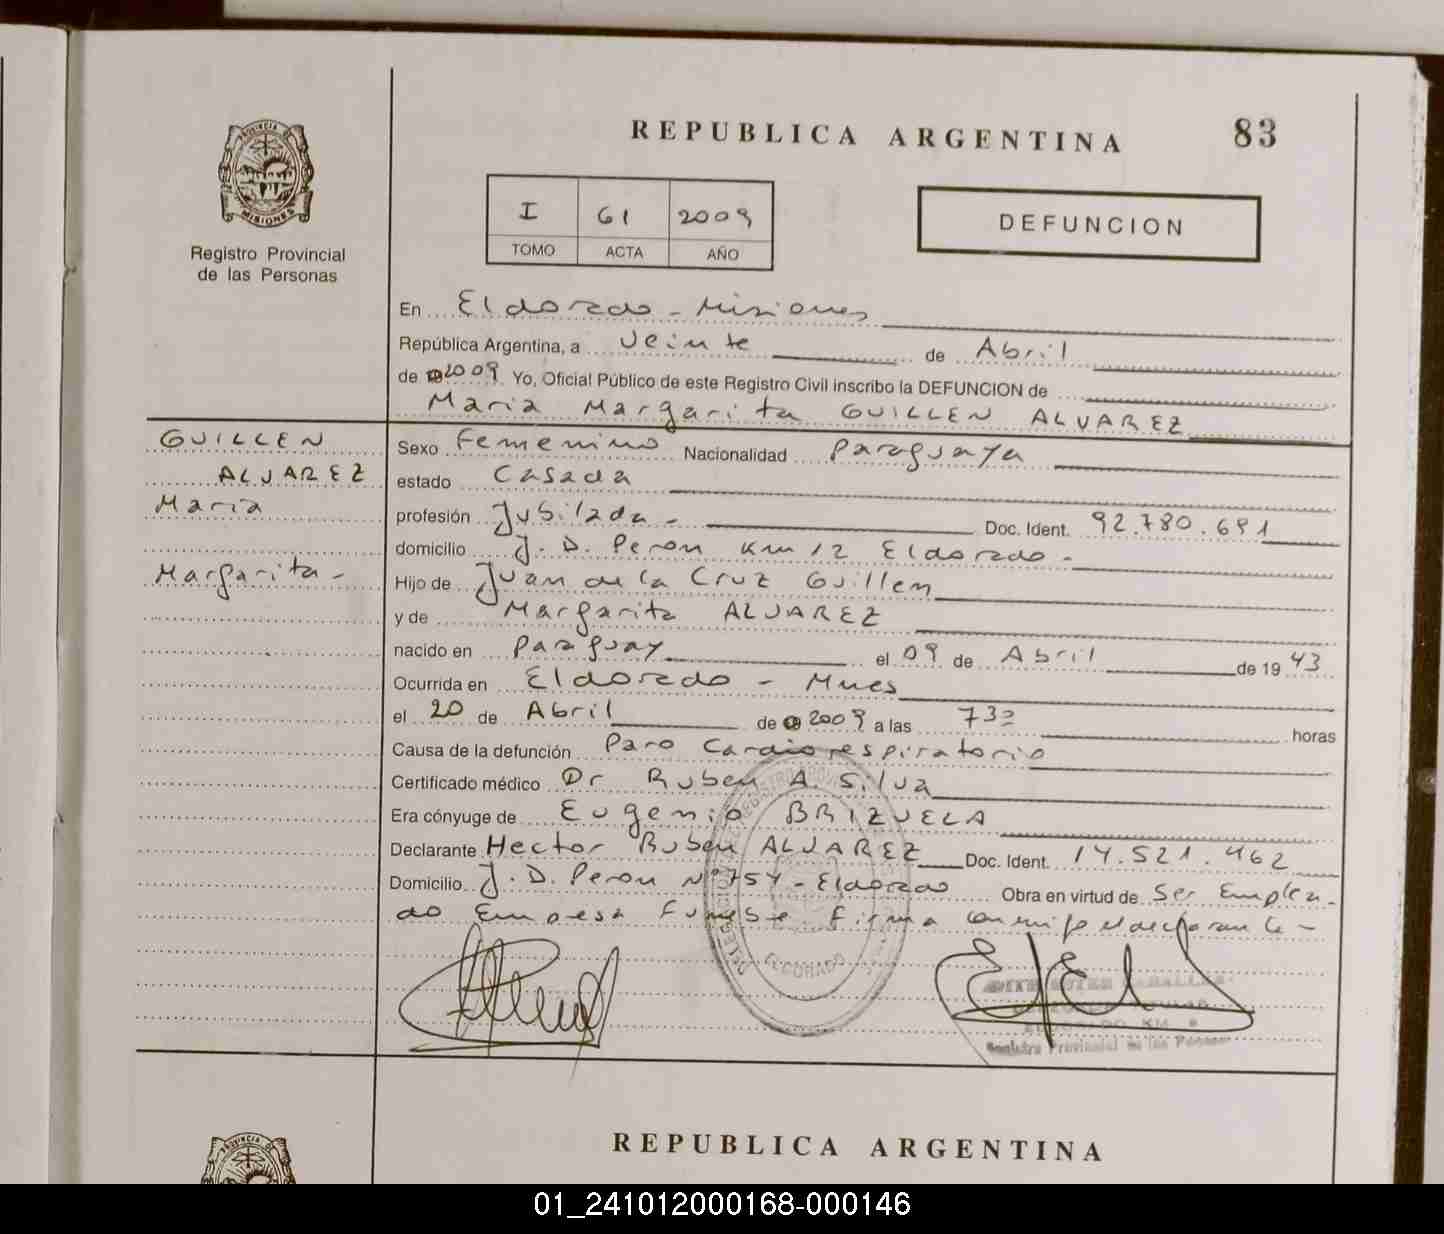 REPUBLICA ARGENTINA
83
PROVINCIA DE
MISIONES
Registro Provincial
de las Personas
I 61 2009
TOMO ACTA AÑO
DEFUNCION
En Eldorado - Misiones
República Argentina, a Veinte de Abril
de 2009 Yo, Oficial Público de este Registro Civil inscribo la DEFUNCION de
Maria Margarita GUILLEN ALVAREZ
GUILLEN
ALVAREZ
Maria
Margarita -
Sexo Femenino Nacionalidad Paraguaya
estado Casada
profesión Jubilada - Doc. Ident. 92.780.691
domicilio J. D. Peron Km 12 Eldorado -
Hijo de Juan de la Cruz Guillen
y de Margarita ALVAREZ
nacido en Paraguay el 09 de Abril de 19 43
Ocurrida en Eldorado - Mnes
el 20 de Abril de 2009 a las 730 horas
Causa de la defunción Paro Cardiorespiratorio
Certificado médico Dr Ruben A. Silva
Era cónyuge de Eugenio BRIZUELA
Declarante Hector Ruben ALVAREZ Doc. Ident. 14.521.462
Domicilio J. D. Peron Nº 754 - Eldorado Obra en virtud de Ser Emplea-
do Empresa Funebre. Firma conmigo el declarante -
ELDORADO
Registro Provincial de las Personas
PROVINCIA DE
REPUBLICA ARGENTINA
01_241012000168-000146